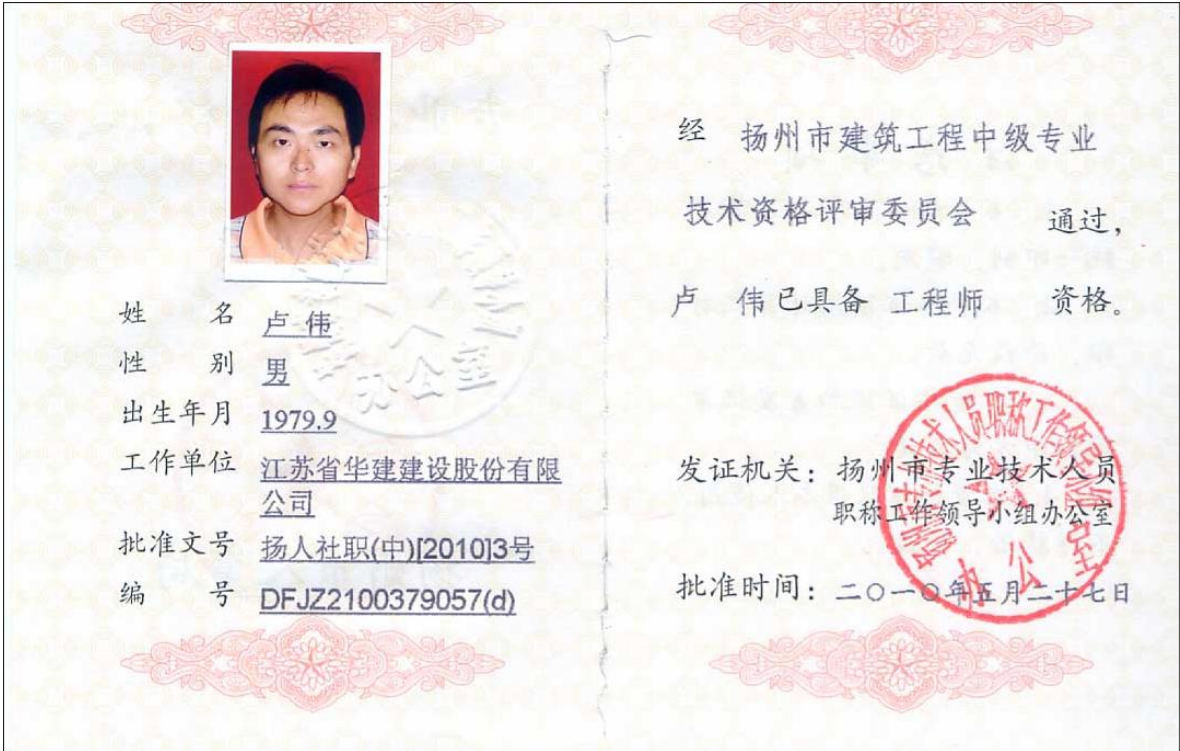 姓 名 卢 伟
性 别 男
出生年月 1979.9
工作单位 江苏省华建建设股份有限
公司
批准文号 扬人社职(中)[2010]3号
编 号 DFJZ2100379057(d)
办公室
经 扬州市建筑工程中级专业
技术资格评审委员会 通过，
卢 伟已具备 工程师 资格。
发证机关：扬州市专业技术人员
职称工作领导小组办公室
批准时间：二〇一〇年五月二十七日
扬州市专业技术人员职称工作领导小组
办公室